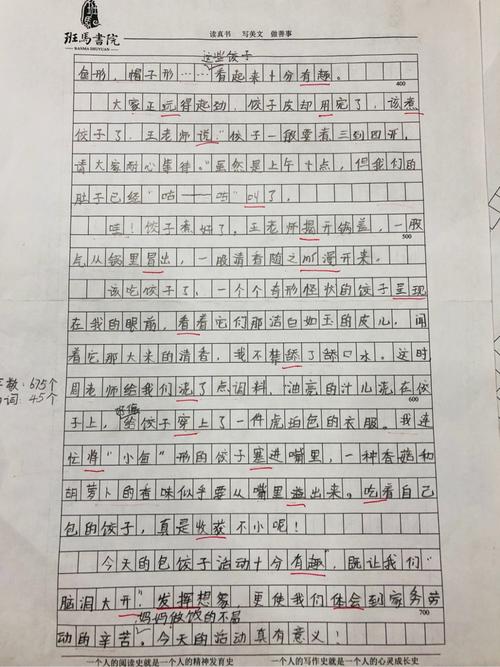 班馬書院
BANMA SHUYUAN
读真书 写美文 做善事
这些饺子
鱼形,帽子形……看起来十分有趣。
400
大家正玩得起劲,饺子皮却用完了,该煮
饺子了,王老师说“饺子一般要看三到四开,
请大家耐心等待。”虽然是上午十点,但我们的
肚子已经“咕——咕”叫了,
哇!饺子煮好了。王老师揭开锅盖,一股
500
气从锅里冒出,一股清香随之而漫开来。
该吃饺子了,一个个奇形怪状的饺子呈现
在我的眼前,看着它们那洁白如玉的皮儿,闻
着它那大米的清香,我不禁舔了舔口水。这时
字数:675个
周老师给我们浇了点调料,“油亮的汁儿浇在饺
600
动词:45个
好像
子上,给饺子穿上了一件虎珀色的衣服。我连
忙将“小鱼”形的饺子塞进嘴里,一种香菇和
胡萝卜的香味似乎要从嘴里溢出来。吃着自己
包的饺子,真是收获不小呢!
今天的包饺子活动十分有趣,既让我们“
脑洞大开”发挥想象,更使我们体会到家务劳
700
妈妈做饭的不易
动的辛苦。今天的活动真有意义!
一个人的阅读史就是一个人的精神发育史 一个人的写作史就是一个人的心灵成长史